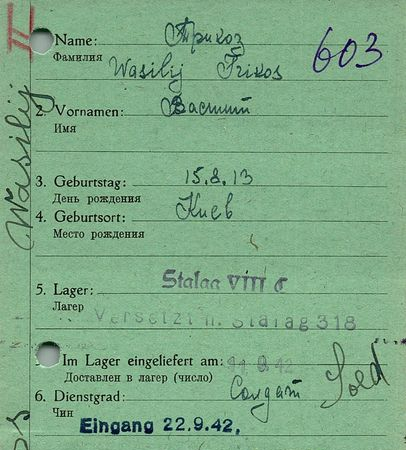 II
603
Name: Трикоз
Фамилия Wasilij Trikos
2. Vornamen: Василий
Имя
3. Geburtstag: 15.8.13
День рождения
4. Geburtsort: Киев
Место рождения
5. Lager: Stalag VIII C
Лагер Versetzt n. Stalag 318
Im Lager eingeliefert am: 9.42
Доставлен в лагер (число)
6. Dienstgrad: Солдат Sold
Чин
Eingang 22.9.42.
Wasilij